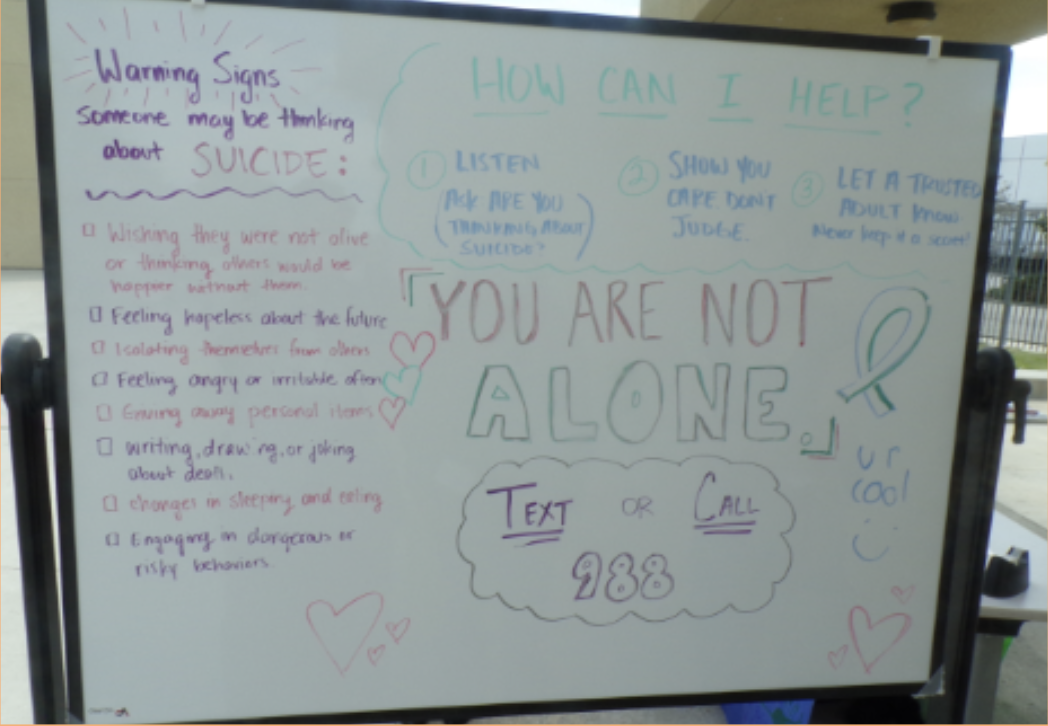 Warning Signs
someone may be thinking
about SUICIDE:
☐ Wishing they were not alive
or thinking others would be
happier without them.
☐ Feeling hopeless about the future
☐ Isolating themselves from others
☐ Feeling angry or irritable often
☐ Giving away personal items
☐ writing, drawing, or joking
about death.
☐ changes in sleeping and eating
☐ Engaging in dangerous or
risky behaviors.
HOW CAN I HELP?
① LISTEN
(ASK ARE YOU
THINKING ABOUT
SUICIDE?)
② SHOW YOU
CARE DON'T
JUDGE.
③ LET A TRUSTED
ADULT KNOW
Never keep it a secret!
「YOU ARE NOT
ALONE.」
TEXT OR CALL
988
u r
cool